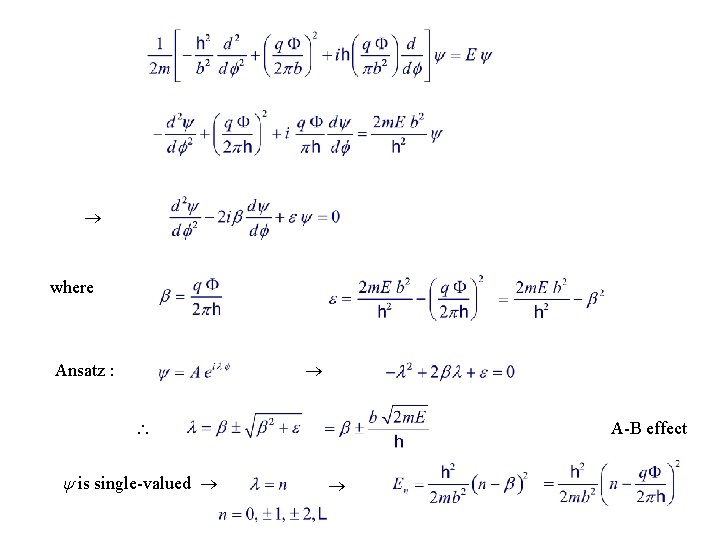 1/2m [ − h²/b² d²/dϕ² + (q Φ/2πb)² + ih (q Φ/πb²) d/dϕ ] ψ = E ψ
− d²ψ/dϕ² + (q Φ/2πh)² + i q Φ/πh dψ/dϕ = 2mE b²/h² ψ
→ d²ψ/dϕ² − 2iβ dψ/dϕ + ε ψ = 0
where β = q Φ/2πh ε = 2mE b²/h² − (q Φ/2πh)² = 2mE b²/h² − β²
Ansatz : ψ = A e^{iλϕ} → −λ² + 2βλ + ε = 0
∴ λ = β ± √(β² + ε) = β ± b √(2mE)/h A-B effect
ψ is single-valued → λ = n → Eₙ = h²/2mb² (n − β)² = h²/2mb² (n − qΦ/2πh)²
n = 0, ±1, ±2, L